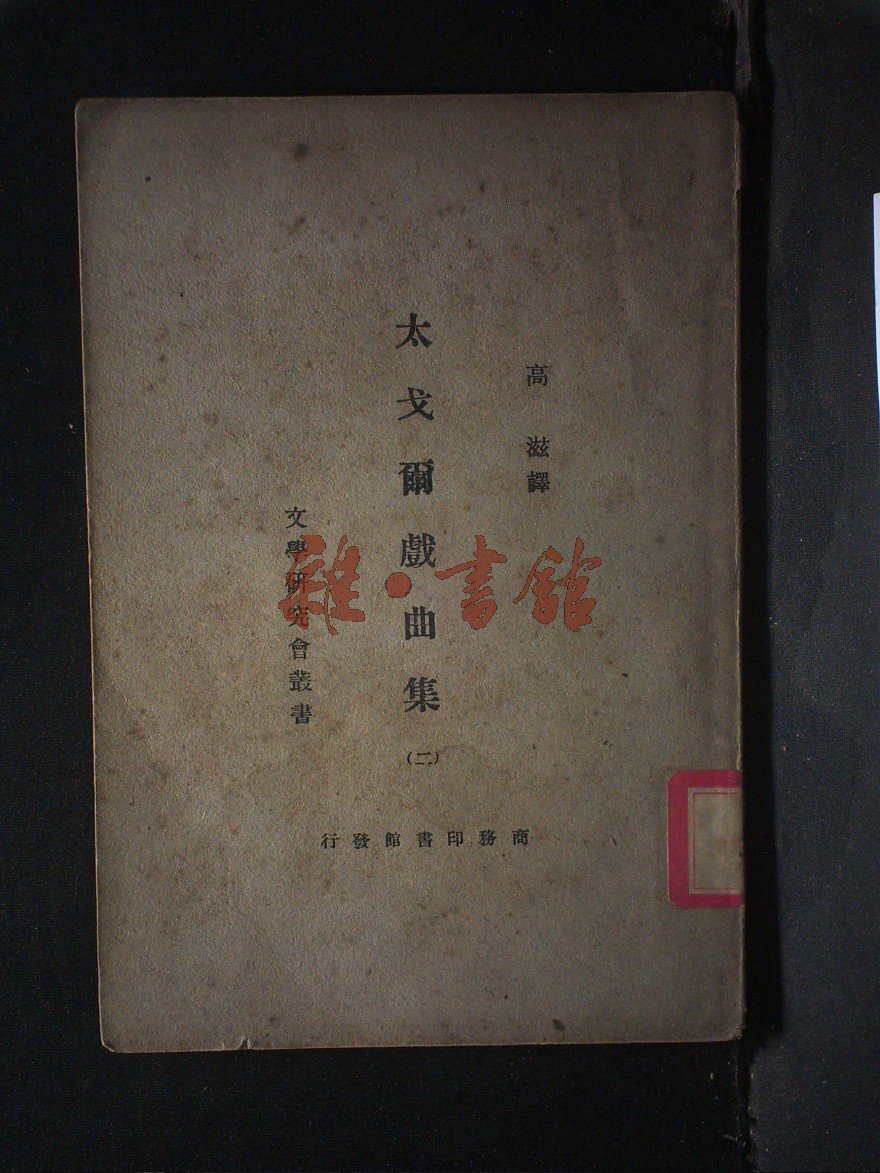 高滋譯
太戈爾戲曲集
(二)
文學研究會叢書
商務印書館發行
雜·書館